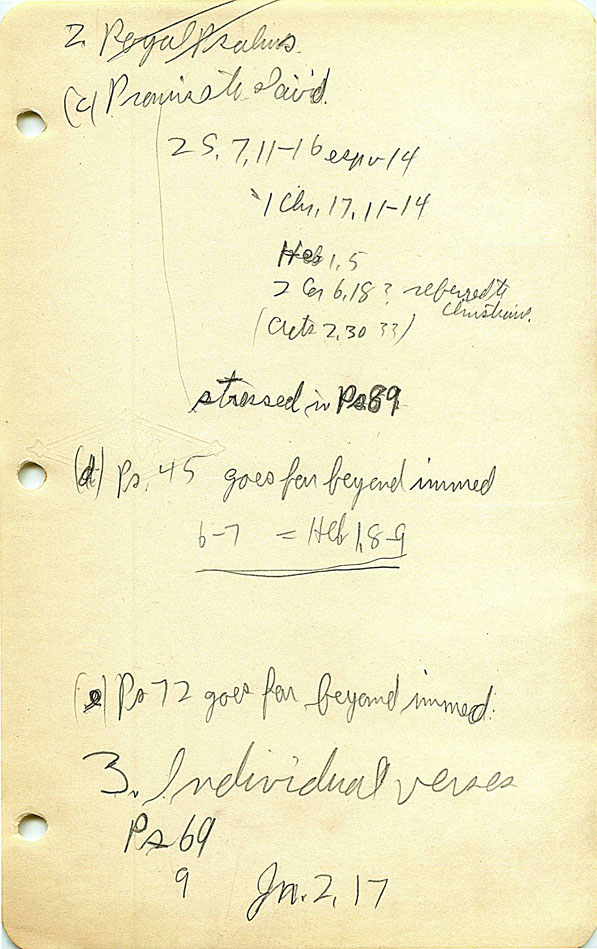 2. Royal Psalms
(c) Promise to David
2 S. 7, 11-16 esp v 14
1 Chr. 17, 11-14
Heb 1, 5
2 Cor 6, 18 ? referred to
Christians.
(Acts 2, 30 ??)
stressed in Ps 89
(d) Ps. 45 goes far beyond immed
6-7 = Heb 1, 8-9
(e) Ps 72 goes far beyond immed.
3. Individual verses
Ps 69
9 Jn. 2, 17